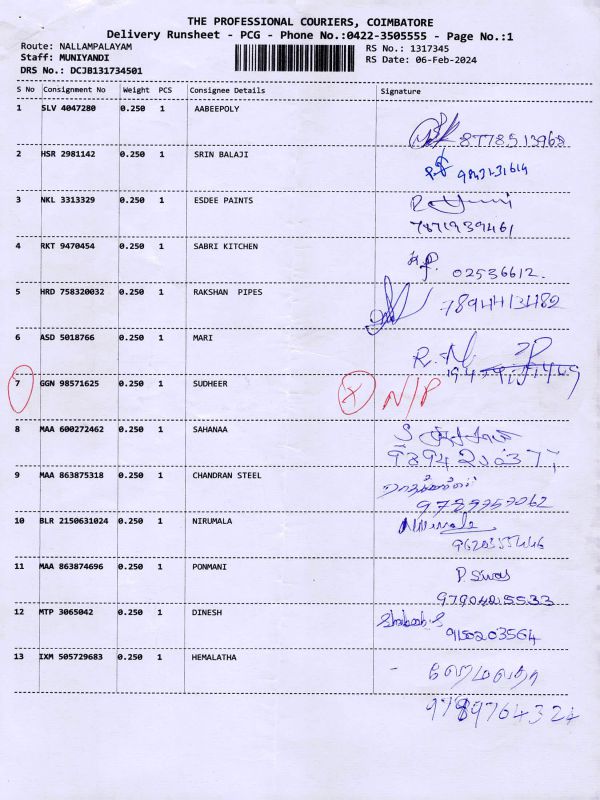 THE PROFESSIONAL COURIERS, COIMBATORE
Delivery Runsheet - PCG - Phone No.:0422-3505555 - Page No.:1
Route: NALLAMPALAYAM RS No.: 1317345
Staff: MUNIYANDI RS Date: 06-Feb-2024
DRS No.: DCJB131734501
S No Consignment No Weight PCS Consignee Details Signature
1 SLV 4047280 0.250 1 AABEEPOLY
8778513968
2 HSR 2981142 0.250 1 SRIN BALAJI
3 NKL 3313329 0.250 1 ESDEE PAINTS
7871939461
4 RKT 9470454 0.250 1 SABRI KITCHEN
02536612.
5 HRD 758320032 0.250 1 RAKSHAN PIPES
7894413482
6 ASD 5018766 0.250 1 MARI
7 GGN 98571625 0.250 1 SUDHEER X N/P
8 MAA 600272462 0.250 1 SAHANAA
9 MAA 863875318 0.250 1 CHANDRAN STEEL
10 BLR 2150631024 0.250 1 NIRUMALA
11 MAA 863874696 0.250 1 PONMANI
9790425533
12 MTP 3065042 0.250 1 DINESH
9150203564
13 IXM 505729683 0.250 1 HEMALATHA ஹேமலதா
9789764324